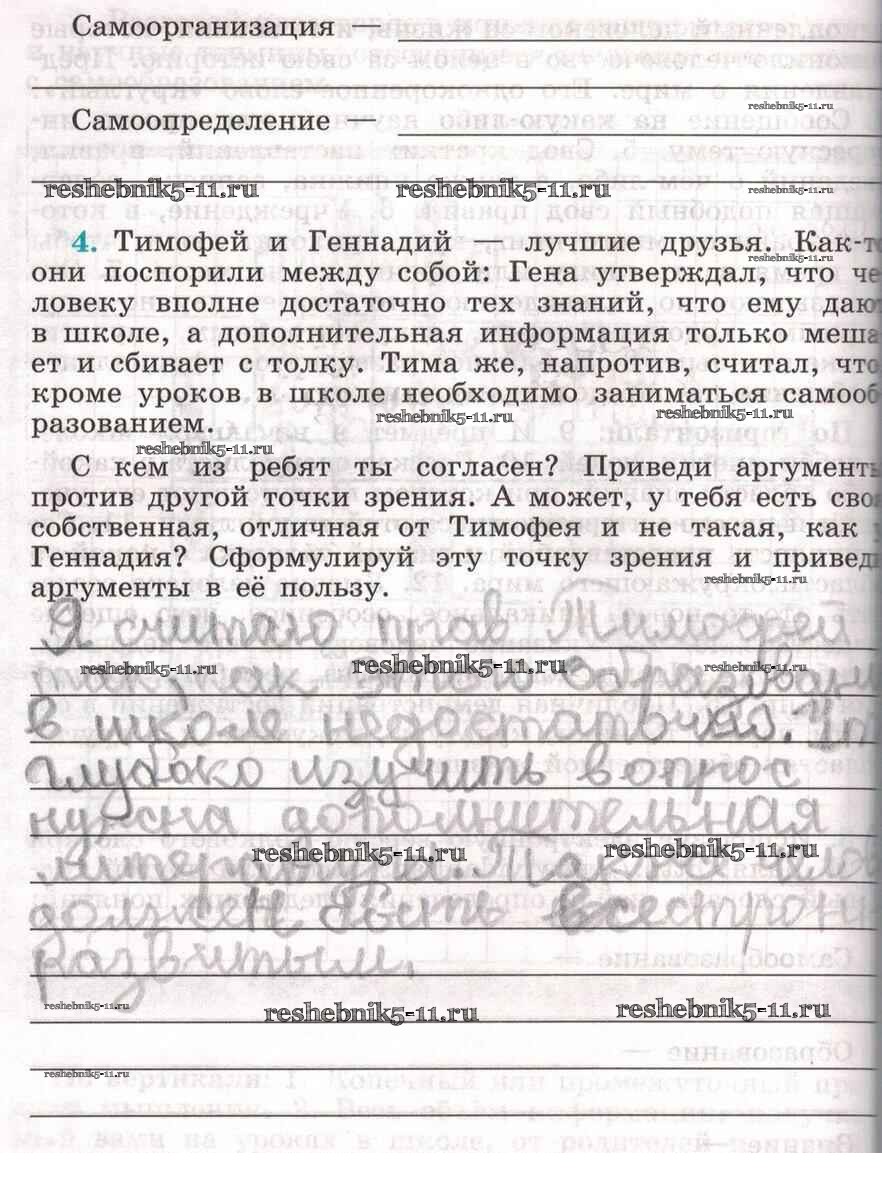 Самоорганизация —
reshebnik5-11.ru
Самоопределение —
reshebnik5-11.ru reshebnik5-11.ru reshebnik5-11.ru
4. Тимофей и Геннадий — лучшие друзья. Как-то
reshebnik5-11.ru
они поспорили между собой: Гена утверждал, что че
ловеку вполне достаточно тех знаний, что ему дают
в школе, а дополнительная информация только меша
ет и сбивает с толку. Тима же, напротив, считал, что
кроме уроков в школе необходимо заниматься самооб
reshebnik5-11.ru reshebnik5-11.ru
разованием.
reshebnik5-11.ru
С кем из ребят ты согласен? Приведи аргументы
против другой точки зрения. А может, у тебя есть своя
собственная, отличная от Тимофея и не такая, как у
Геннадия? Сформулируй эту точку зрения и приведи
reshebnik5-11.ru
аргументы в её пользу.
Я считаю прав Тимофей
reshebnik5-11.ru reshebnik5-11.ru reshebnik5-11.ru
так как этого
в школе недостаточно.
глубоко изучить вопрос
нужна дополнительная
reshebnik5-11.ru reshebnik5-11.ru
должен быть
развитым.
reshebnik5-11.ru reshebnik5-11.ru reshebnik5-11.ru
reshebnik5-11.ru